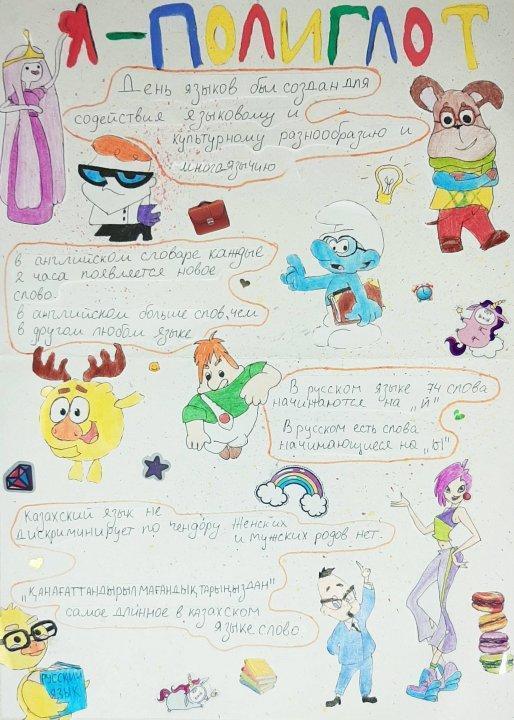 Я-ПОЛИГЛОТ
День языков был создан для
содействия языковому и
культурному разнообразию и
многоязычию
в английском словаре каждые
2 часа появляется новое
слово.
в английском больше слов, чем
в другом любом языке
В русском языке 74 слова
начинаются на „Й"
В русском есть слова
начинающиеся на „Ы"
Казахский язык не
дискриминирует по чендору. Женских
и мужских родов нет.
„ҚАНАҒАТТАНДЫРЫЛМАҒАНДЫҚТАРЫҢЫЗДАН"
самое длинное в казахском
языке слово
РУССКИЙ
ЯЗЫК